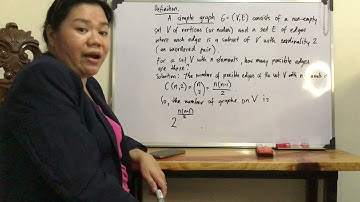 Definition.
A simple graph G = (V, E) consists of a non-empty
set V of vertices (or nodes) and a set E of edges
where each edge is a subset of V with cardinality 2
(an unordered pair).
For a set V with n elements, how many possible edges
are there?
Solution: The number of possible edges of the set V with n
C(n,2) = (n 2) = n(n-1)/2
So, the number of graphs on V is
2^(n(n-1)/2)